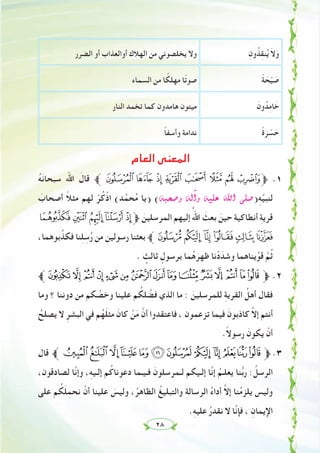 ولا يُنقِذُونِ	ولا يخلصوني من الهلاك أوالعذاب أو الضرر
صَيْحَةً	صوتًا مهلكًا من السماء
خَامِدُونَ	ميتون هامدون كما تخمد النار
حَسْرَةً	ندامة وأسفاً
المعنى العام
١. ﴿ وَاضْرِبْ لَهُم مَّثَلًا أَصْحَابَ الْقَرْيَةِ إِذْ جَاءَهَا الْمُرْسَلُونَ ﴾ قالَ الله سبحانهُ
لنبيِّهِ(صلى الله عليه وآله وصحبه) (يا مُحمَّد) اذْكُرْ لهم مثلاً أصحابَ
قرية أنطاكية حينَ بعثَ اللهُ إليهم المرسلين ﴿ إِذْ أَرْسَلْنَا إِلَيْهِمُ اثْنَيْنِ فَكَذَّبُوهُمَا
فَعَزَّزْنَا بِثَالِثٍ فَقَالُوا إِنَّا إِلَيْكُم مُّرْسَلُونَ ﴾ بعثنا رسولين من رُسلنا فكذَّبوهما،
ثُمَّ قوَّيناهما وشددْنا ظهرَهُما برسولٍ ثالثٍ .
٢. ﴿ قَالُوا مَا أَنتُمْ إِلَّا بَشَرٌ مِّثْلُنَا وَمَا أَنزَلَ الرَّحْمَٰنُ مِن شَيْءٍ إِنْ أَنتُمْ إِلَّا تَكْذِبُونَ ﴾
فقال أهلُ القرية للمرسلين : ما الذي فضَّلكُم علينا وخصَّكم من دوننا ؟ وما
أنتم إلاّ كاذبونَ فيما تزعمون ، فاعتقدوا أنَّ مَنْ كانَ مثلَهُم في البشرِ لا يصلحُ
أنْ يكون رسولاً.
٣. ﴿ قَالُوا رَبُّنَا يَعْلَمُ إِنَّا إِلَيْكُمْ لَمُرْسَلُونَ ﴿١٦﴾ وَمَا عَلَيْنَا إِلَّا الْبَلَاغُ الْمُبِينُ ﴾ قال
الرسلُ: ربُّنا يعلمُ إنّا إليكم لمرسلونَ فيما دعوناكُم إليه، وإنّا لصادقون،
وليس يلزمُنا إلاَّ أداءُ الرسالة والتبليغُ الظاهرُ، وليسَ علينا أنْ نحملَكُم على
الإيمانِ ، فإنَّا لا نقدرُ عليه.
٢٨